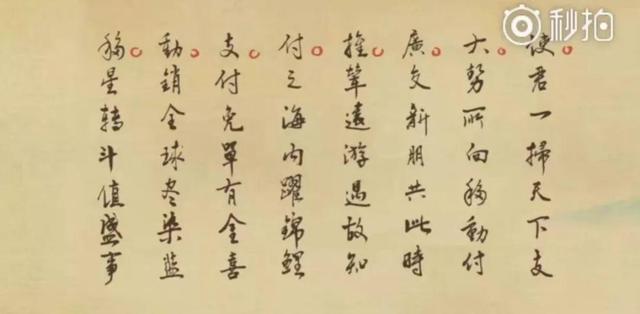 使君一掃天下支
大勢所向移動付
廣交新朋共此時
推輦遠游遇故知
付之海內躍錦鯉
支付免單有全喜
動銷全球尽染藍
移星轉斗值盛事
秒拍